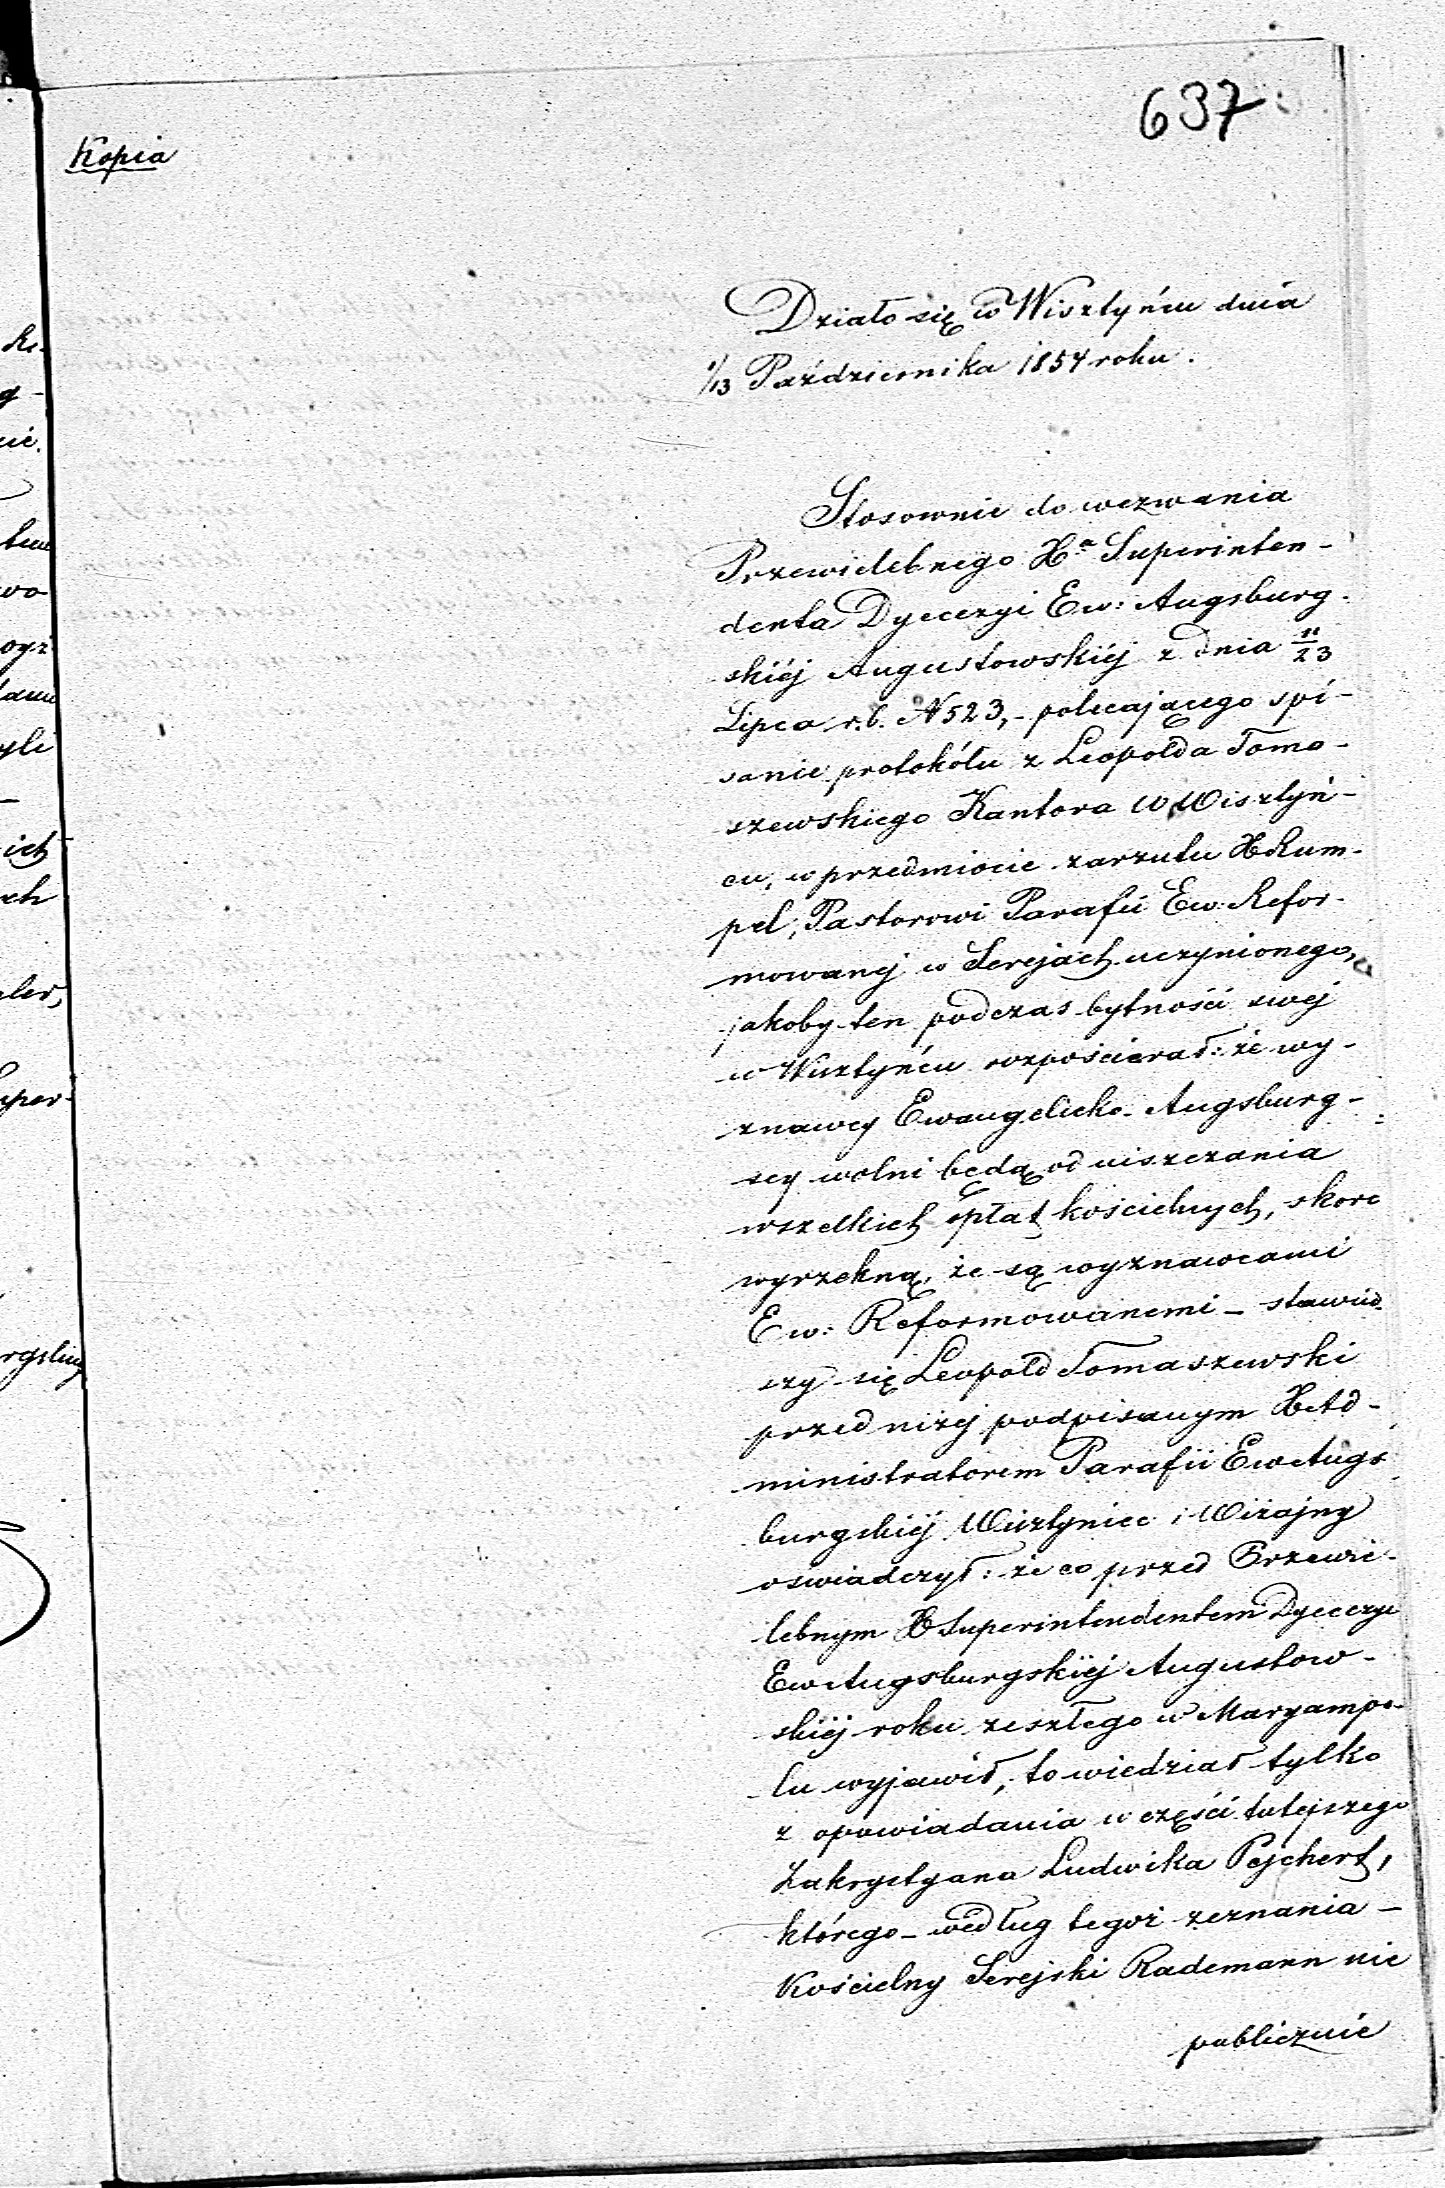 637
Kopia
Działo się w Wisztyńcu dnia
1/13 Października 1854 roku.
Stosownie do wezwania
Przewielebnego Xa Superinten-
denta Dyecezyi Ew: Augsburg-
skiéj Augustowskiéj z dnia 11/23
Lipca r.b. N 523,- polecającego spi-
sanie protokółu z Leopolda Toma-
szewskiego Kantora w Wisztyń-
cu, w przedmiocie zarzutu X Rum-
pel, Pastorowi Parafii Ew: Refor-
mowanéj w Serejach uczynionego,
jakoby ten podczas bytności swéj
w Wisztyńcu rozpościerał: że wy-
znawcy Ewangelicko-Augsburg-
scy wolni będą od uiszczania
wszelkich opłat kościelnych, skoro
wyrzekną, że są wyznawcami
Ew: Reformowanemi – stawiw-
szy się Leopold Tomaszewski
przed niżéj podpisanym X Ad-
ministratorem Parafii Ew Augs-
burgskiéj Wisztyniec i Wiżajny
oświadczył: że co przed Przewie-
lebnym X Superintendentem Dyecezyi
Ew Augsburgskiéj Augustow-
skiéj roku zeszłego w Maryampo-
lu wyjawił, to wiedział tylko
z opowiadania w części tutejszego
Zakrystyana Ludwika Pejchert,
którego – według tegoż zeznania –
Kościelny Serejski Rademann nie
publicznie